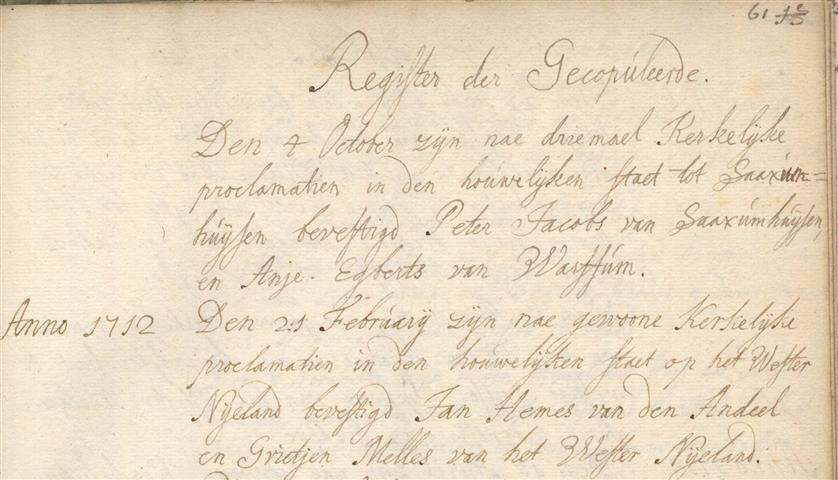 61
Register der Gecopúleerde.
Den 4 October zÿn nae driemael Kerkelÿke
proclamatien in den houwelÿken staet tot Saaxúm=
húÿsen bevestigd Peter Jacobs van Saaxúmhúÿsen,
en Anje Egberts van Warffúm.
Anno 1712 Den 21 Februarÿ zÿn nae gewoone Kerkelÿke
proclamatien in den houwelÿken staet op het Wester
Nÿeland bevestigd Jan Hemes van den Andeel
en Grietjen Melles van het Wester Nÿeland.